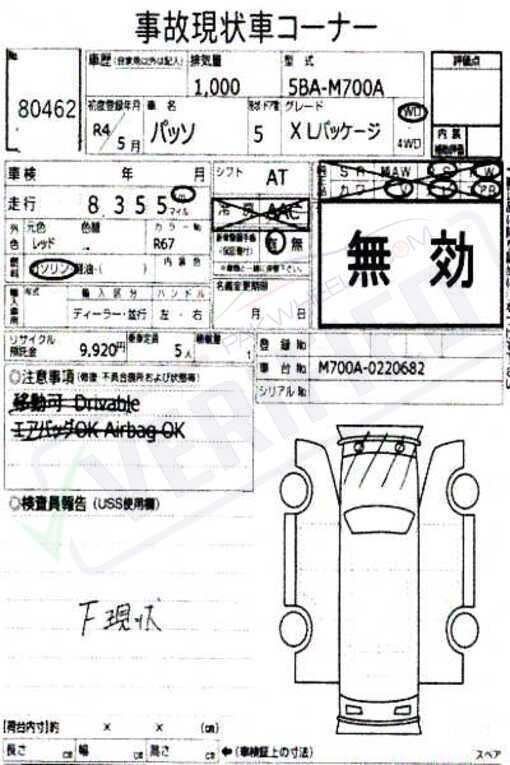 事故現状車コーナー
No
80462
車歴 (自家用以外は記入) 排気量 型式
1,000 5BA-M700A
評価点
初度登録年月 車名 グレード
R4年5月 パッソ 5 X Lパッケージ
2WD
4WD
内装
補助評価
車検 年 月
シフト AT
走行 8,355 km マイル
冷房 AAC
外色 元色 色替 カラーNo
レッド R67
有 無
無効
燃料 ガソリン 軽油・( ) 内装色
名義変更期限
月 日
輸入車用 年式 輸入区分 ハンドル
ディーラー・並行 左・右
リサイクル預託金 9,920円 乗車定員 5人 積載量 t
登録No
車台No M700A-0220682
シリアルNo
◎注意事項 (修復・不具合箇所および状態等)
移動可 Drivable
エアバッグOK Airbag OK
◎検査員報告 (USS使用欄)
下現状
PAKWHEELS.COM
VERIFIED
[荷台内寸]約 × × (cm)
長さ cm 幅 cm 高さ cm ←(車検証上の寸法)
スペア